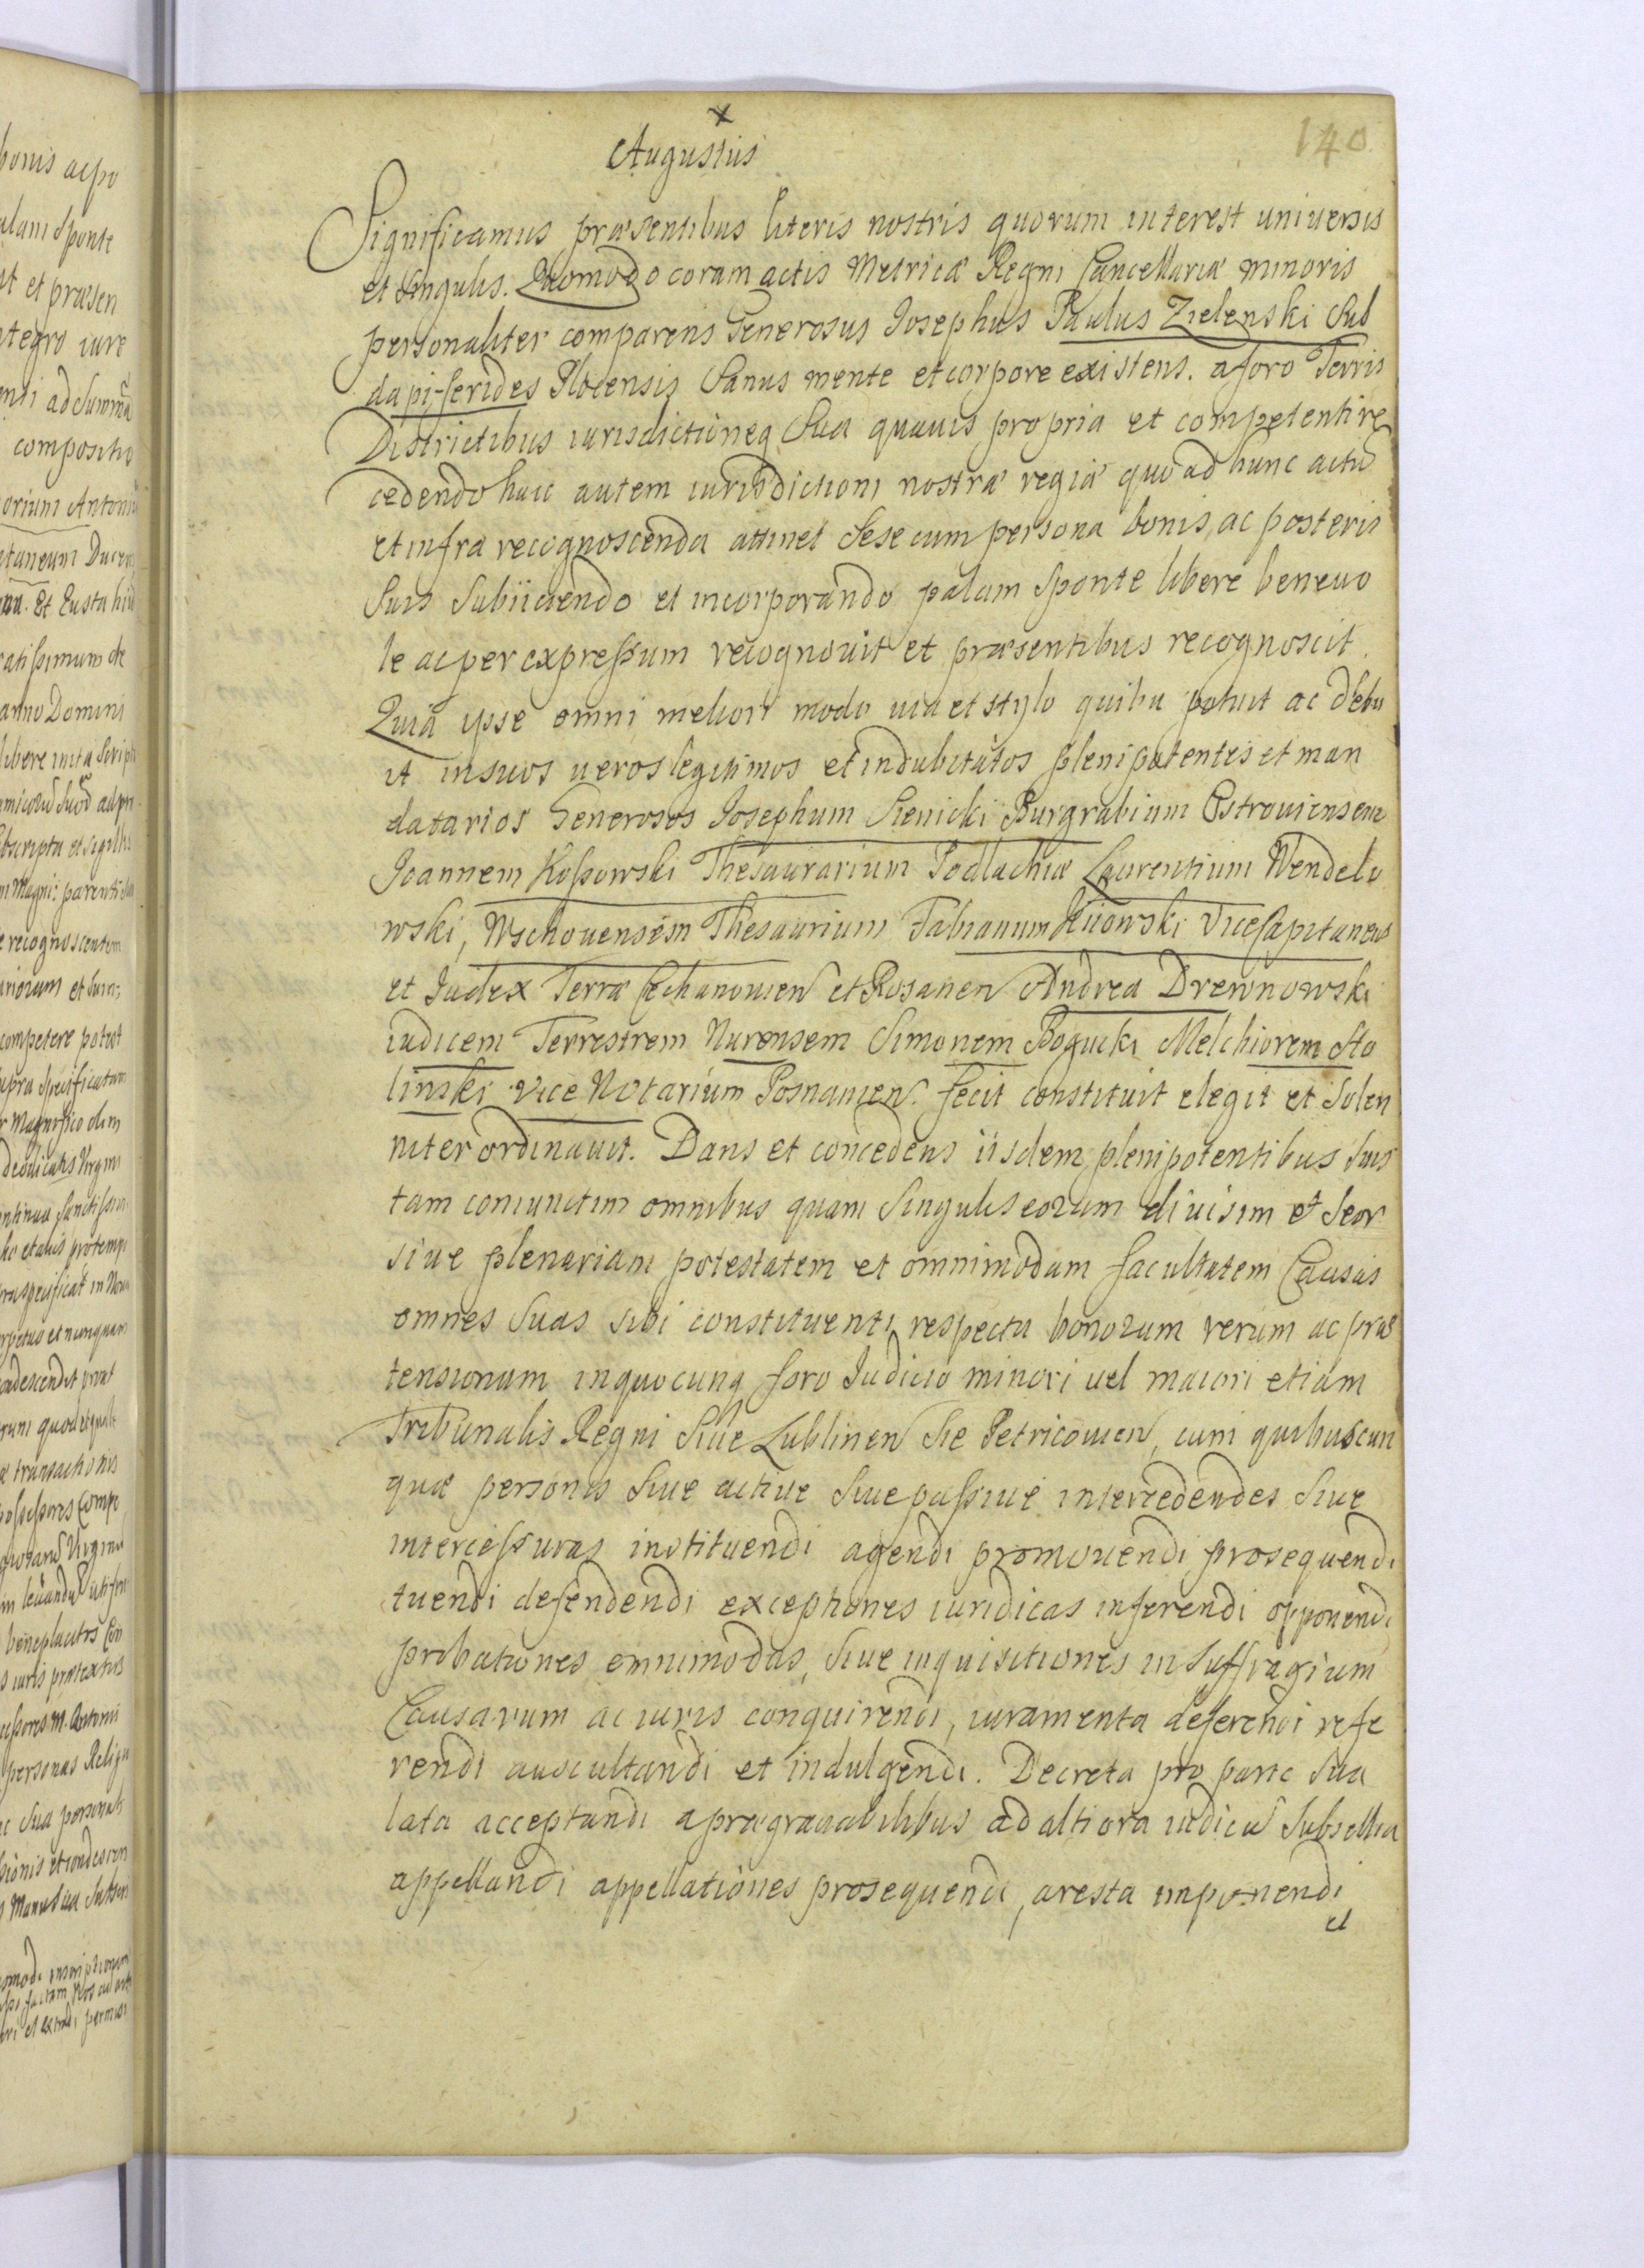 140
Augustus
Significamus præsentibus literis nostris quorum interest universis
et singulis. Quomodo coram actis Metricæ Regni Cancellariæ minoris
personaliter comparens Generosus Josephus Paulus Zielenski Sub
dapiferides Plocensis sanus mente et corpore existens. a foro Terris
Districtibus iurisdictioneq sua quavis propria et competenti re
cedendo huic autem iurisdictioni nostræ regiæ quo ad hunc actũ
et infra recognoscenda attinet sese cum persona bonis, ac posteris
suis subiiciendo et incorporando palam sponte libere benevo
le ac per expressum recognouit et præsentibus recognoscit.
Quia ipse omni meliori modo uia et stylo quibu potuit ac debu
it in suos ueros legitimos et indubitatos plenipotentes et man
datarios Generosos Josephum Sienicki Burgrabium Ostrouiensem
Joannem Kossowski Thesaurarium Podlachiæ Laurentium Wendelo
wski, Wschouensem Thesaurium Fabianum Kiiowski ViceCapitaneus
et Judex Terræ Cechanouien et Rosanen Andrea Drewnowski
iudicem Terrestrem Nurensem Simonem Bogucki Melchiorem Sto
linski Vice Notarium Posnanien. fecit constituit elegit et solen
niter ordinauit. Dans et concedens iisdem plenipotentibus suis
tam coniunctim omnibus quam singulis eorum diuisim et seor
siue plenariam potestatem et omnimodam facultatem Causas
omnes suas sibi constituenti respectu bonorum rerum ac præ
tensionum in quocunq foro Judicio minori uel maiori etiam
Tribunalis Regni siue Lublinen sie Petricouien, cum quibuscun
quæ personis siue actiue siue passiue intercedendes siue
intercessuras instituendi agendi promouendi prosequendi
tuendi defendendi exceptiones iuridicas inferendi opponendi
probationes omnimodas, siue inquisitiones in suffragium
Causarum ac iuris conquirendi, iuramenta deferendi refe
rendi auscultandi et indulgendi. Decreta pro parte sua
lata acceptandi a prægrauabilibus ad altiora iudicũ subsellia
appellandi appellationes prosequendi, aresta imponendi
et